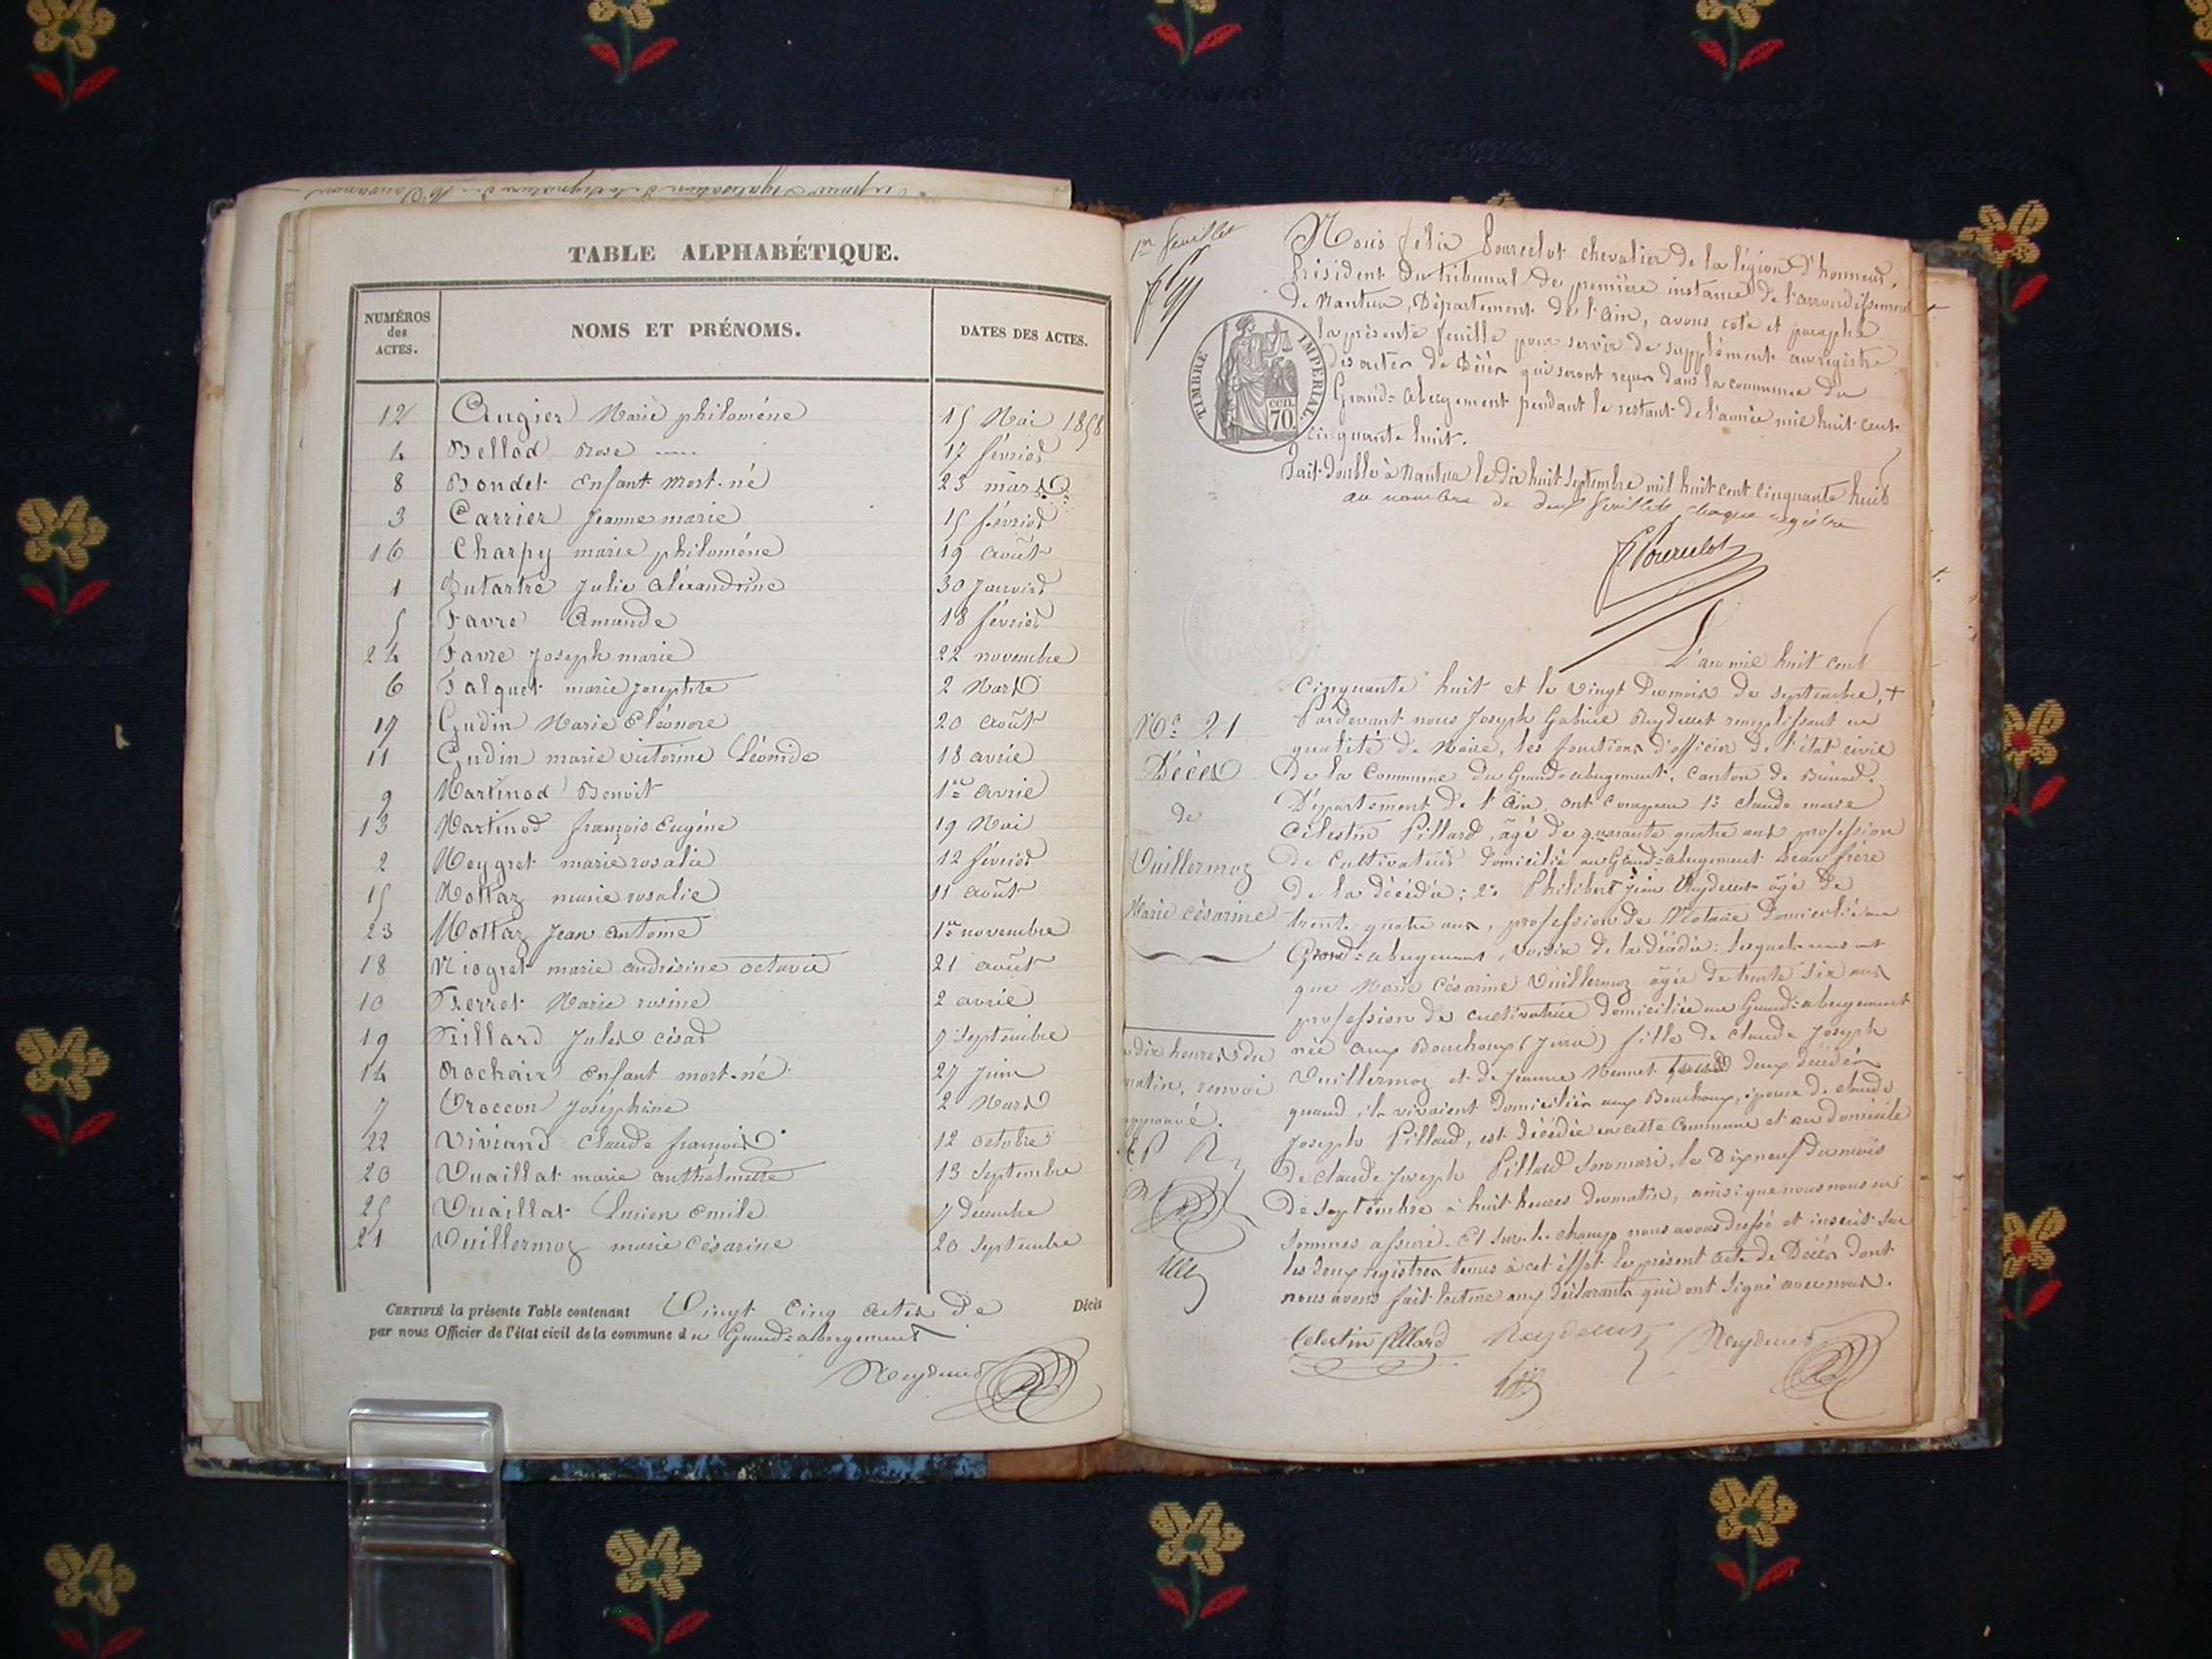 TABLE ALPHABÉTIQUE.
NUMÉROS des ACTES. NOMS ET PRÉNOMS. DATES DES ACTES.
12 Augier Marie philoméne 15 Mai 1858
4 Bellod Rose 17 février
8 Bondet Enfant mort-né 23 mars
3 Carrier Jeanne marie 15 février
16 Charpy marie philoméne 19 août
1 Dutartre Julie Aléxandrine 30 Janvier
5 Favre Amande 18 février
24 Favre Joseph marie 22 novembre
6 Falquet marie Josephte 2 Mars
17 Gudin Marie Eléonore 20 août
11 Gudin marie victorine Léonide 18 avril
9 Martinod Benoit 1er avril
13 Martinod françois Eugéne 19 Mai
2 Meygret marie rosalie 12 février
15 Mottaz marie rosalie 11 août
23 Mottaz Jean antoine 1er novembre
18 Niogret marie andrésine octavie 21 août
10 Perret Marie rosine 2 avril
19 Pillard Jules césar 9 septembre
14 Rochaix Enfant mort-né 27 juin
7 Troccon Joséphine 2 Mars
22 Viviand Claude françois 12 octobre
20 Vuaillat marie anthelmette 13 septembre
25 Vuaillat Lucien Emile 7 décembre
21 Vuillermoz marie Césarine 20 septembre
CERTIFIÉ la présente Table contenant Vingt Cinq actes de Décès
par nous Officier de l'état civil de la commune du Grand=abergement
Reydellet
1er feuillet
Nous félix Pourcelot chevalier de la légion d'honneur,
Président du tribunal de première instance de l'arrondissement
de Nantua, Département de l'ain, avons coté et paraphé
la présente feuille pour servir de supplément au registre
des actes de Décès qui seront reçus dans la commune du
Grand=abergement pendant le restant de l'année mil huit cent
cinquante huit.
TIMBRE IMPÉRIAL.
cen. 70
Fait double à Nantua le dix huit septembre mil huit cent cinquante huit
au nombre de deux feuillets chaque registre
F Pourcelot
L'an mil huit cent
cinquante huit et le vingt du mois de septembre, +
Pardevant nous Joseph Gabriel Reydellet remplissant en
qualité de Maire, les fonctions d'officier de l'état civil
de la Commune du Grand-abergement, canton de Brénod,
Département de l'Ain, ont comparu 1° claude marie
Célestin Pillard, âgé de quarante quatre ans profession
de Cultivateur domicilié au Grand=abergement beau frère
de la décédée; 2° Philibert Jean Reydellet âgé de
trente quatre ans, profession de Notaire domicilié au
Grand=abergement, voisin de la décédée: lesquels nous ont
que Marie Césarine Vuillermoz âgée de trente six ans
profession de cultivatrice domiciliée au Grand=abergement
née aux Bouchoux (Jura) fille de claude Joseph
Vuillermoz et de Jeanne Mermet tous deux décédés
quand ils vivaient domiciliés aux Bouchoux, épouse de claude
Joseph Pillard, est décédée en cette Commune et au domicile
de claude Joseph Pillard son mari, le dix neuf du mois
de septembre à huit heures du matin, ainsi que nous nous en
sommes assuré. Et sur-le-champ nous avons dressé et inscrit sur
les deux registres tenus à cet éffet le présent acte de Décès dont
nous avons fait lecture aux déclarants qui ont signé avec nous.
N° 21
Décès
de
Vuillermoz
Marie césarine
dix heures du
matin, renvoi
approuvé.
Celestin Pillard Reydellet Reydellet